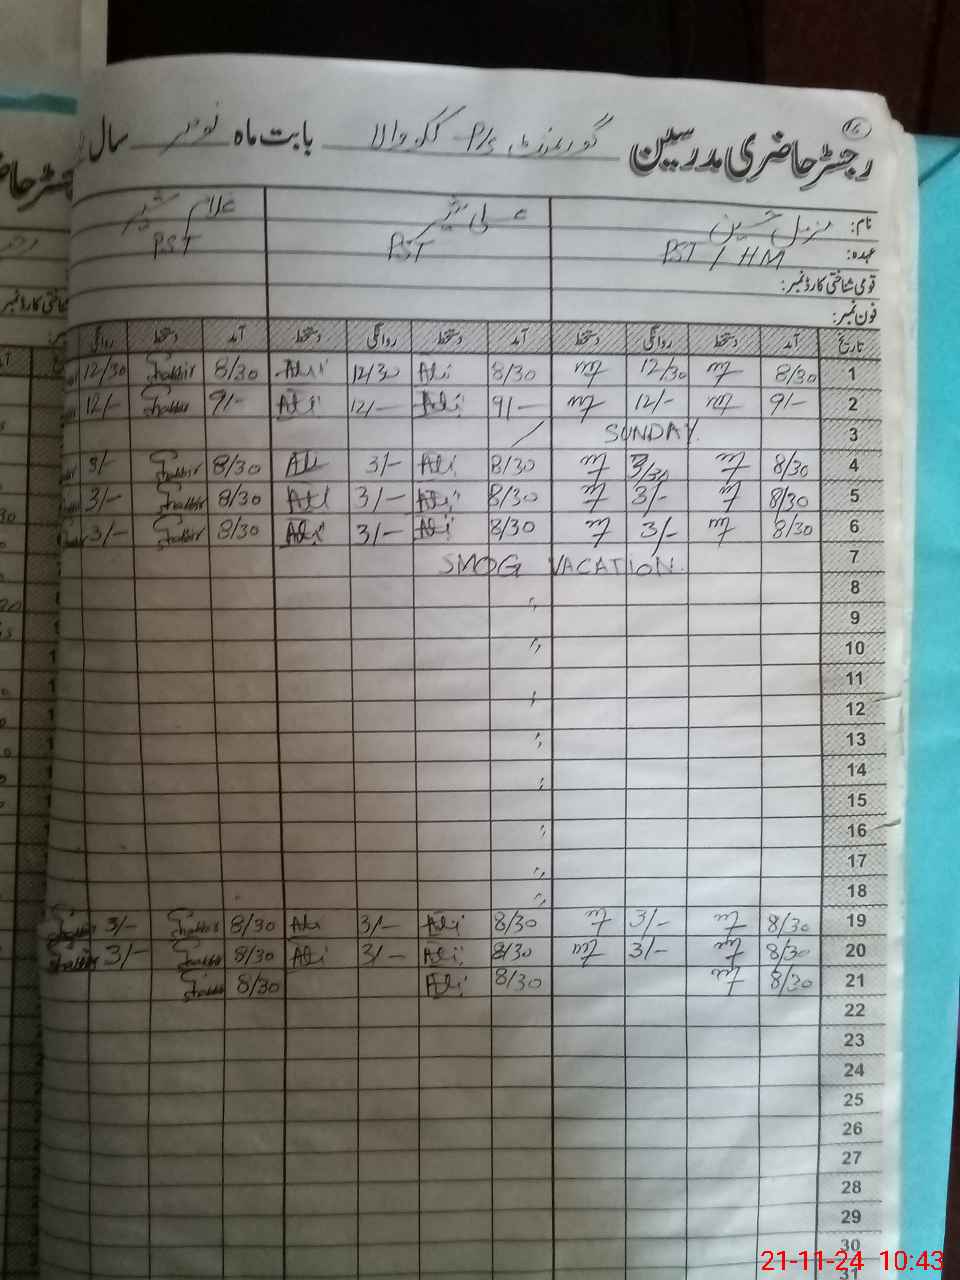 16
رجسٹر حاضری مدرسین گورنمنٹ P/S ککووالا بابت ماہ نومبر سال
نام: مزمل حسین علی شیر غلام شبیر
عہدہ: PST / HM PST PST
قومی شناختی کارڈ نمبر:
فون نمبر:
تاریخ آمد دستخط روانگی دستخط آمد دستخط روانگی دستخط آمد دستخط روانگی
1 8/30 12/30 8/30 Ali 12/30 Ali 8/30 Shabbir 12/30
2 9/- 12/- 9/- Ali 12/- Ali 9/- Shabbir 12/-
3 SUNDAY
4 8/30 8/30 Ali 3/- Ali 8/30 Shabbir 3/-
5 8/30 3/- 8/30 Ali 3/- Ali 8/30 Shabbir 3/-
6 8/30 3/- 8/30 Ali 3/- Ali 8/30 Shabbir 3/-
7 SMOG VACATION
8 〃
9
10 〃
11
12
13 〃
14 〃
15
16 〃
17 〃
18 〃
19 8/30 3/- 8/30 Ali 3/- Ali 8/30 Shabbir 3/- Shabbir
20 8/30 3/- 8/30 Ali 3/- Ali 8/30 Shabbir 3/- Shabbir
21 8/30 8/30 Ali 8/30 Shabbir
22
23
24
25
26
27
28
29
30
31
21-11-24 10:43